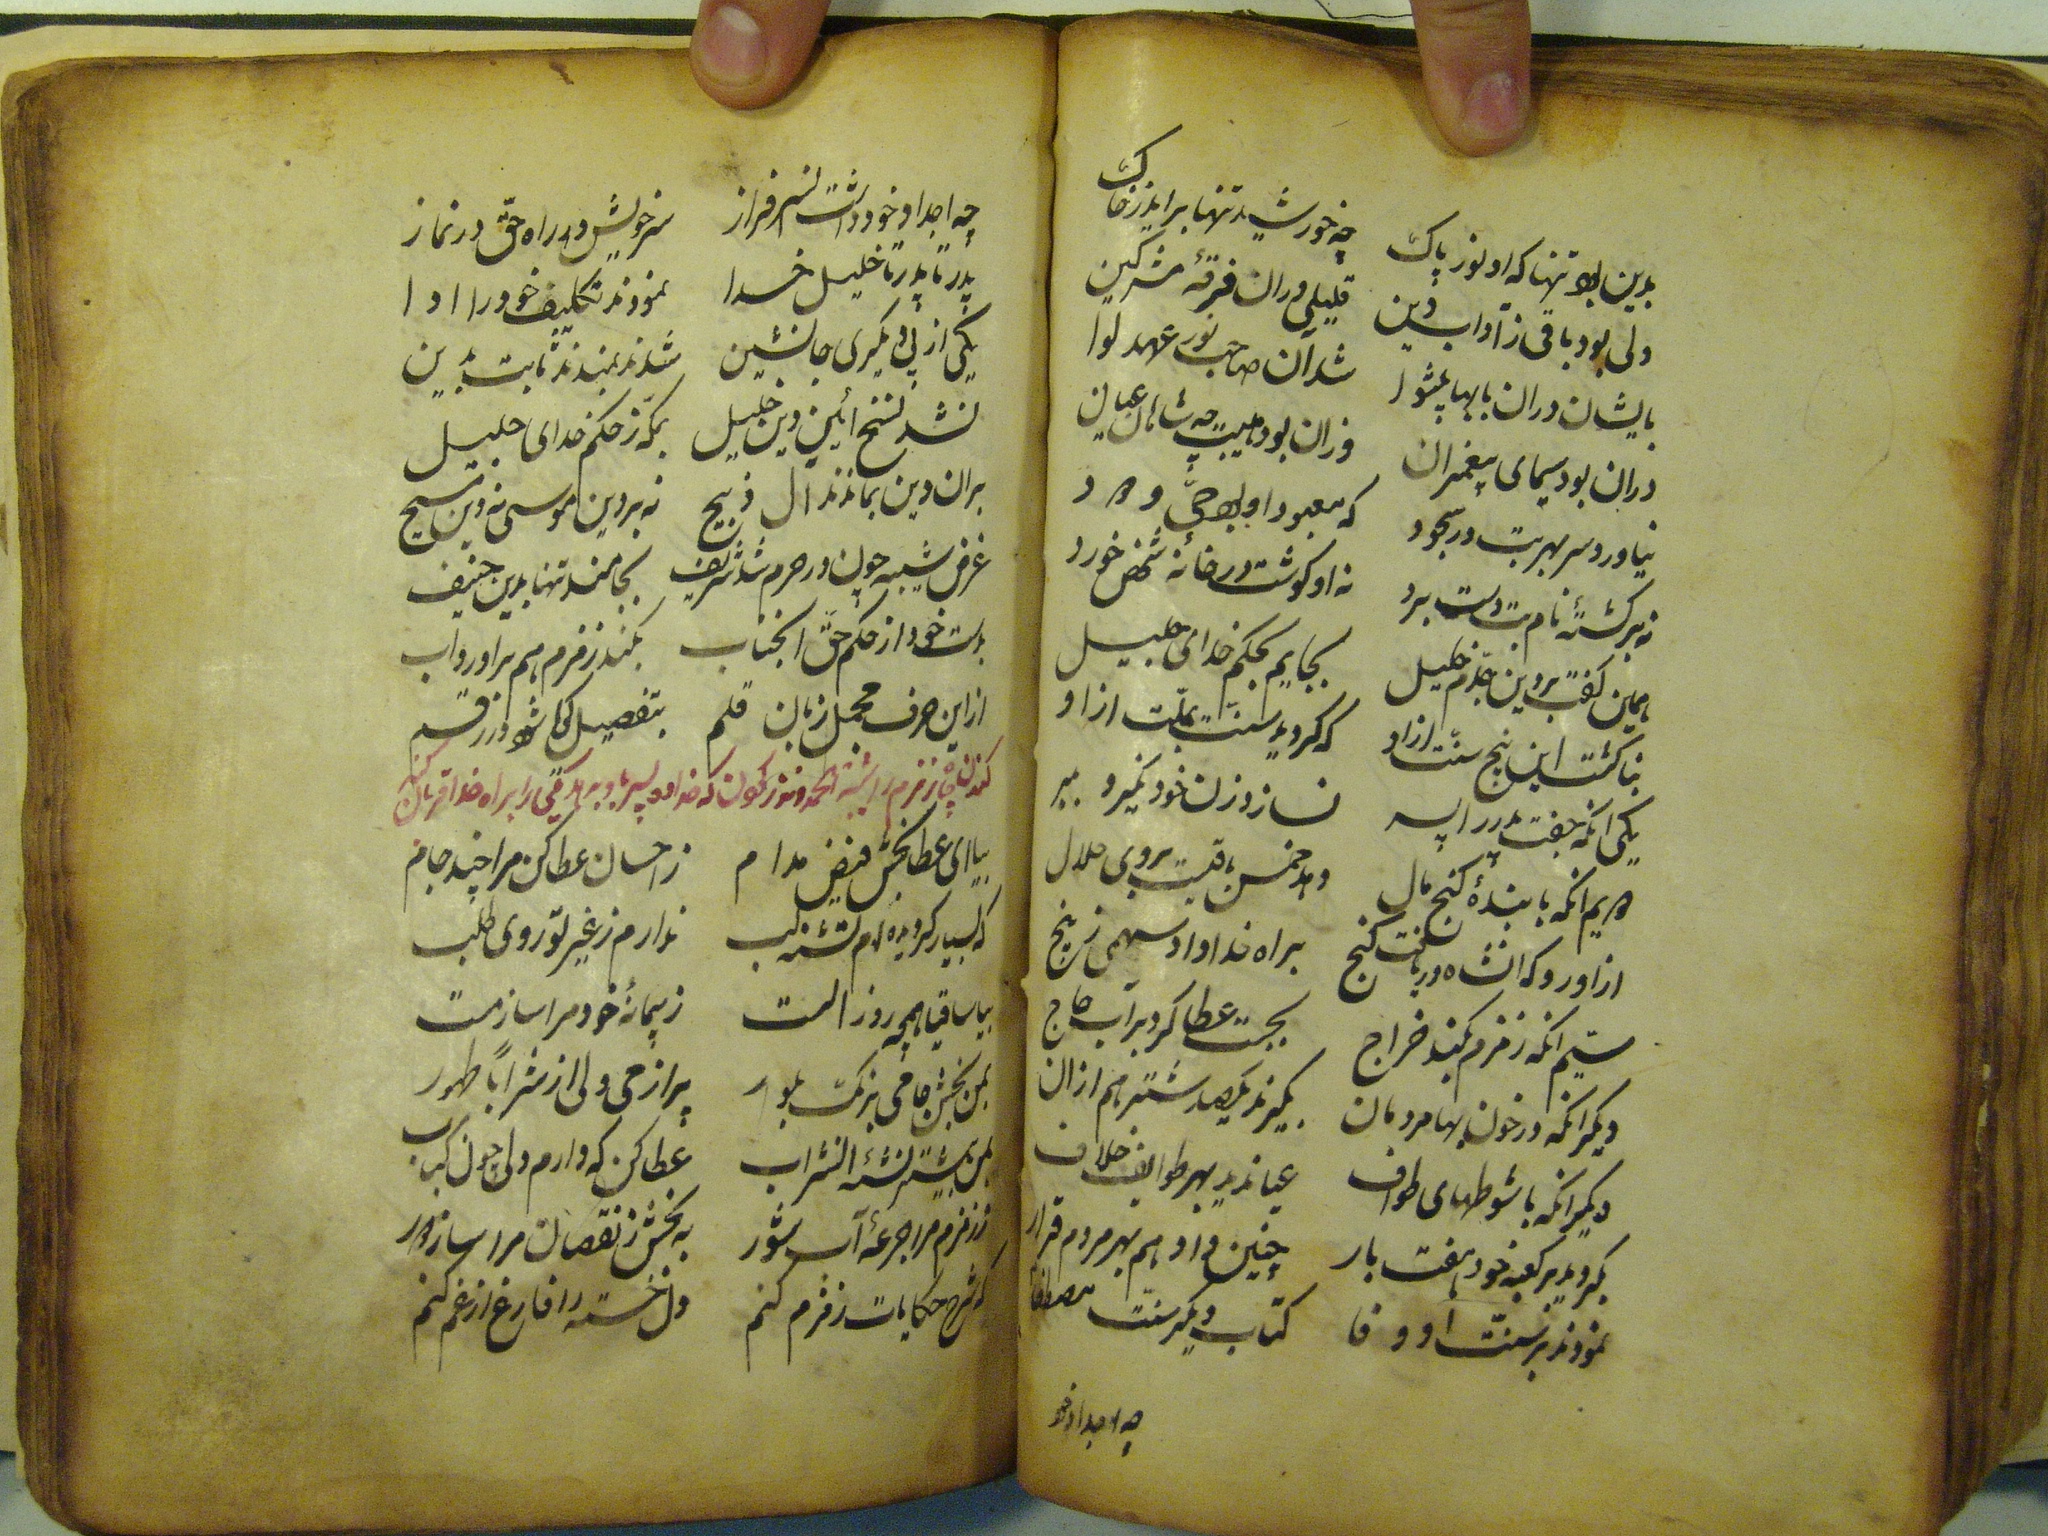 بدین بود تنها که او نور پاک چه خورشید تنها براید ز خاک
ولی بود باقی ز آداب دین قلیلی دران فرقهٔ مشرکین
بایشان دران بابها پیشوا شد آن صاحب نور عهد لوا
دران بود سیمای پیغمبران وزان بود هیبت چه شاهان عیان
نیاورد سر بهر بت در سجود که معبود او بود حیّ ودود
نه بر کشتهٔ نام بت دست برد نه او کوشت در خانهٔ شخص خورد
همین کفت بر دین جدّم خلیل بجایم بحکم خدای جلیل
بنا کشت این پنج سنّت ازاو که کردید سنّت بملّت ازاو
یکی انکه جفت پدر را پسر نسازد زن خود نکیرد ببر
دویم انکه یابندهٔ کنج مال دهد خمس باقیست بروی حلال
ازاو رو که انشاه دریافت کنج براه خدا داد سهمی ز پنج
سیّم انکه زمزم بکند خراج بحجت عطا کرد بر آب حاج
دیکر انکه در خون بها مردمان بکیرند یکصد شتر هم ازان
دیکر انکه با شوطهای طواف عیاندید بهر طوایف خلاف
بکردید بر کعبه خود هفت بار چنین داد او هم بهر مردم قرار
نمودند بر سنّت او وفا کتاب دیکر سنّت مصطفا
چه اجداد خود
چه اجداد خود داشت انسرفراز سر خویش در راه حقّ در نماز
پدر تا پدر تا خلیل خدا نمودند تکلیف خود را ادا
یکی از پی دیکری جانشین شدند بمندند ثابت بدین
نشد نسخ ائین دین خلیل بمکّه ز حکم خدای جلیل
بران دین بماندند ال ذبیح نه بر دین موسی نه دین مسیح
غرض شیبه چون در حرم شد شریف بجا مند تنها بدین حنیف
بدست خود از حکم حقّ انجناب بکند زمزم هم براورد آب
ازاین حرف مجمل زبان قلم بتفصیل کویا شود در رقم
کندن چاه زمزم را شیبة الحمد و نذر کردن که خدا ده پسر باو بدهد یکی را براه خدا قربان کند
بیا ای عطابخش فیض مدام ز احسان عطا کن مرا چند جام
که بسیار کردیده‌ام تشنه لب ندارم ز غیر تو روی طلب
بیا ساقیا همچه روز الست ز پیمانهٔ خود مرا ساز مست
بمن بخش جامی برنک بلور پر از می ولی از شراباً طهور
بمن بیشتر نشئهٔ انشراب عطا کن که دارم دلی چون کباب
ز زمزم مرا جرعهٔ آب شور به بخش ز نقصان مرا ساز دور
که شرح حکایات زمزم کنم دل خسته را فارغ از غم کنم